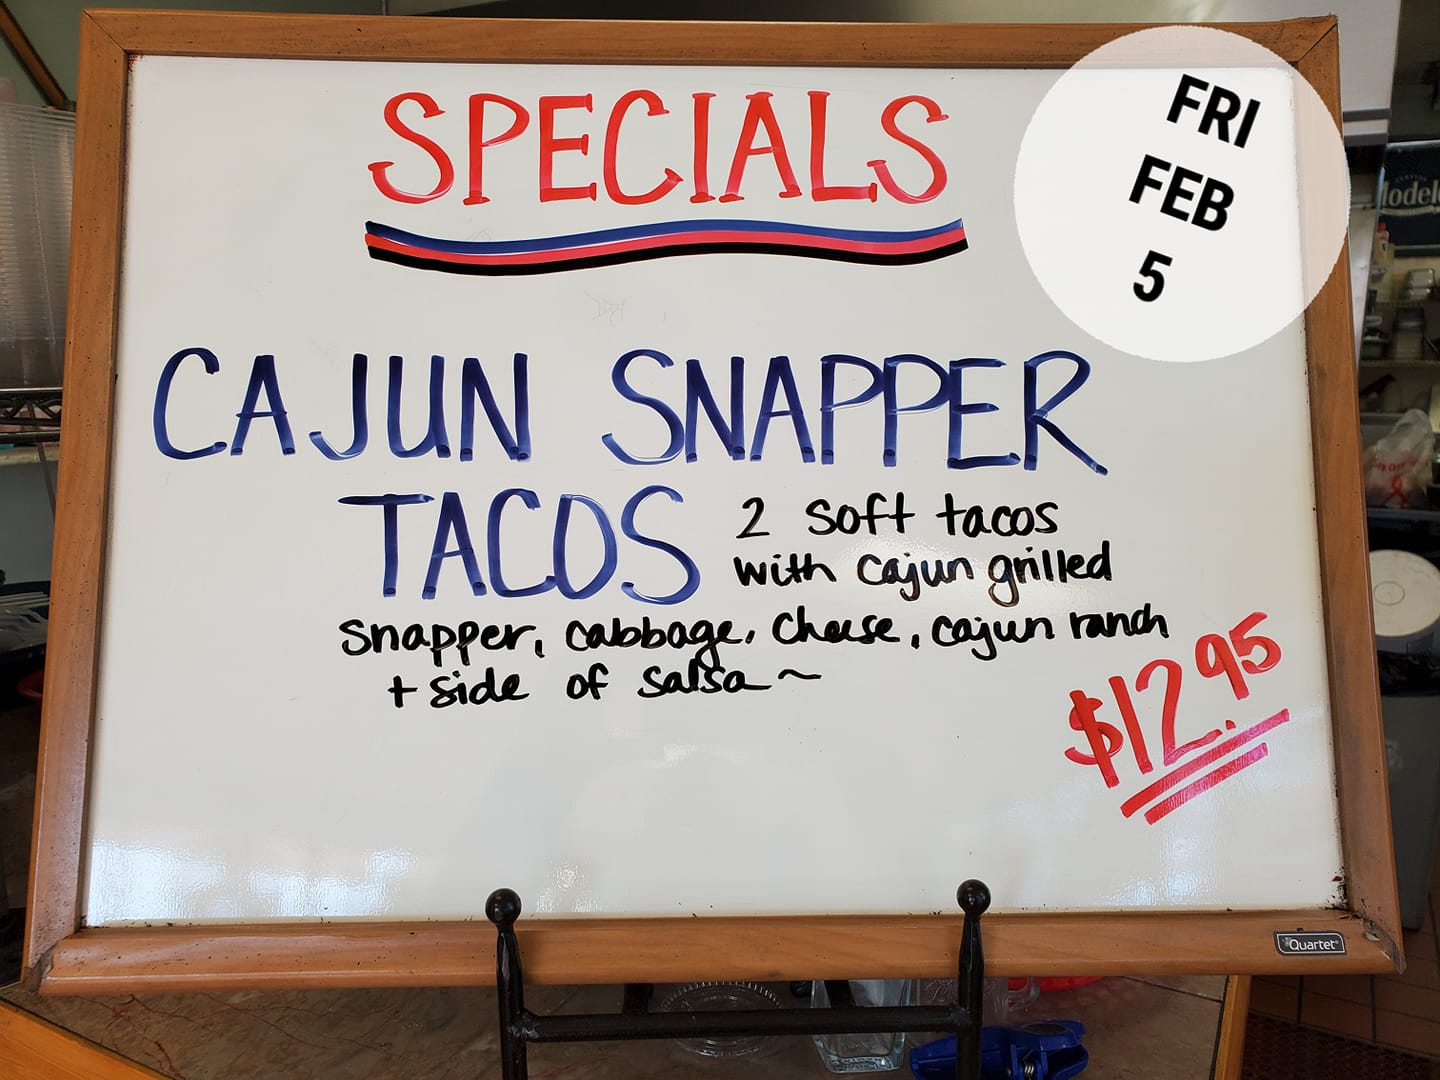 SPECIALS
FRI
FEB
5
CAJUN SNAPPER
TACOS
2 soft tacos
with cajun grilled
snapper, cabbage, cheese, cajun ranch
+ side of salsa ~
$12.95
Quartet
Modelo